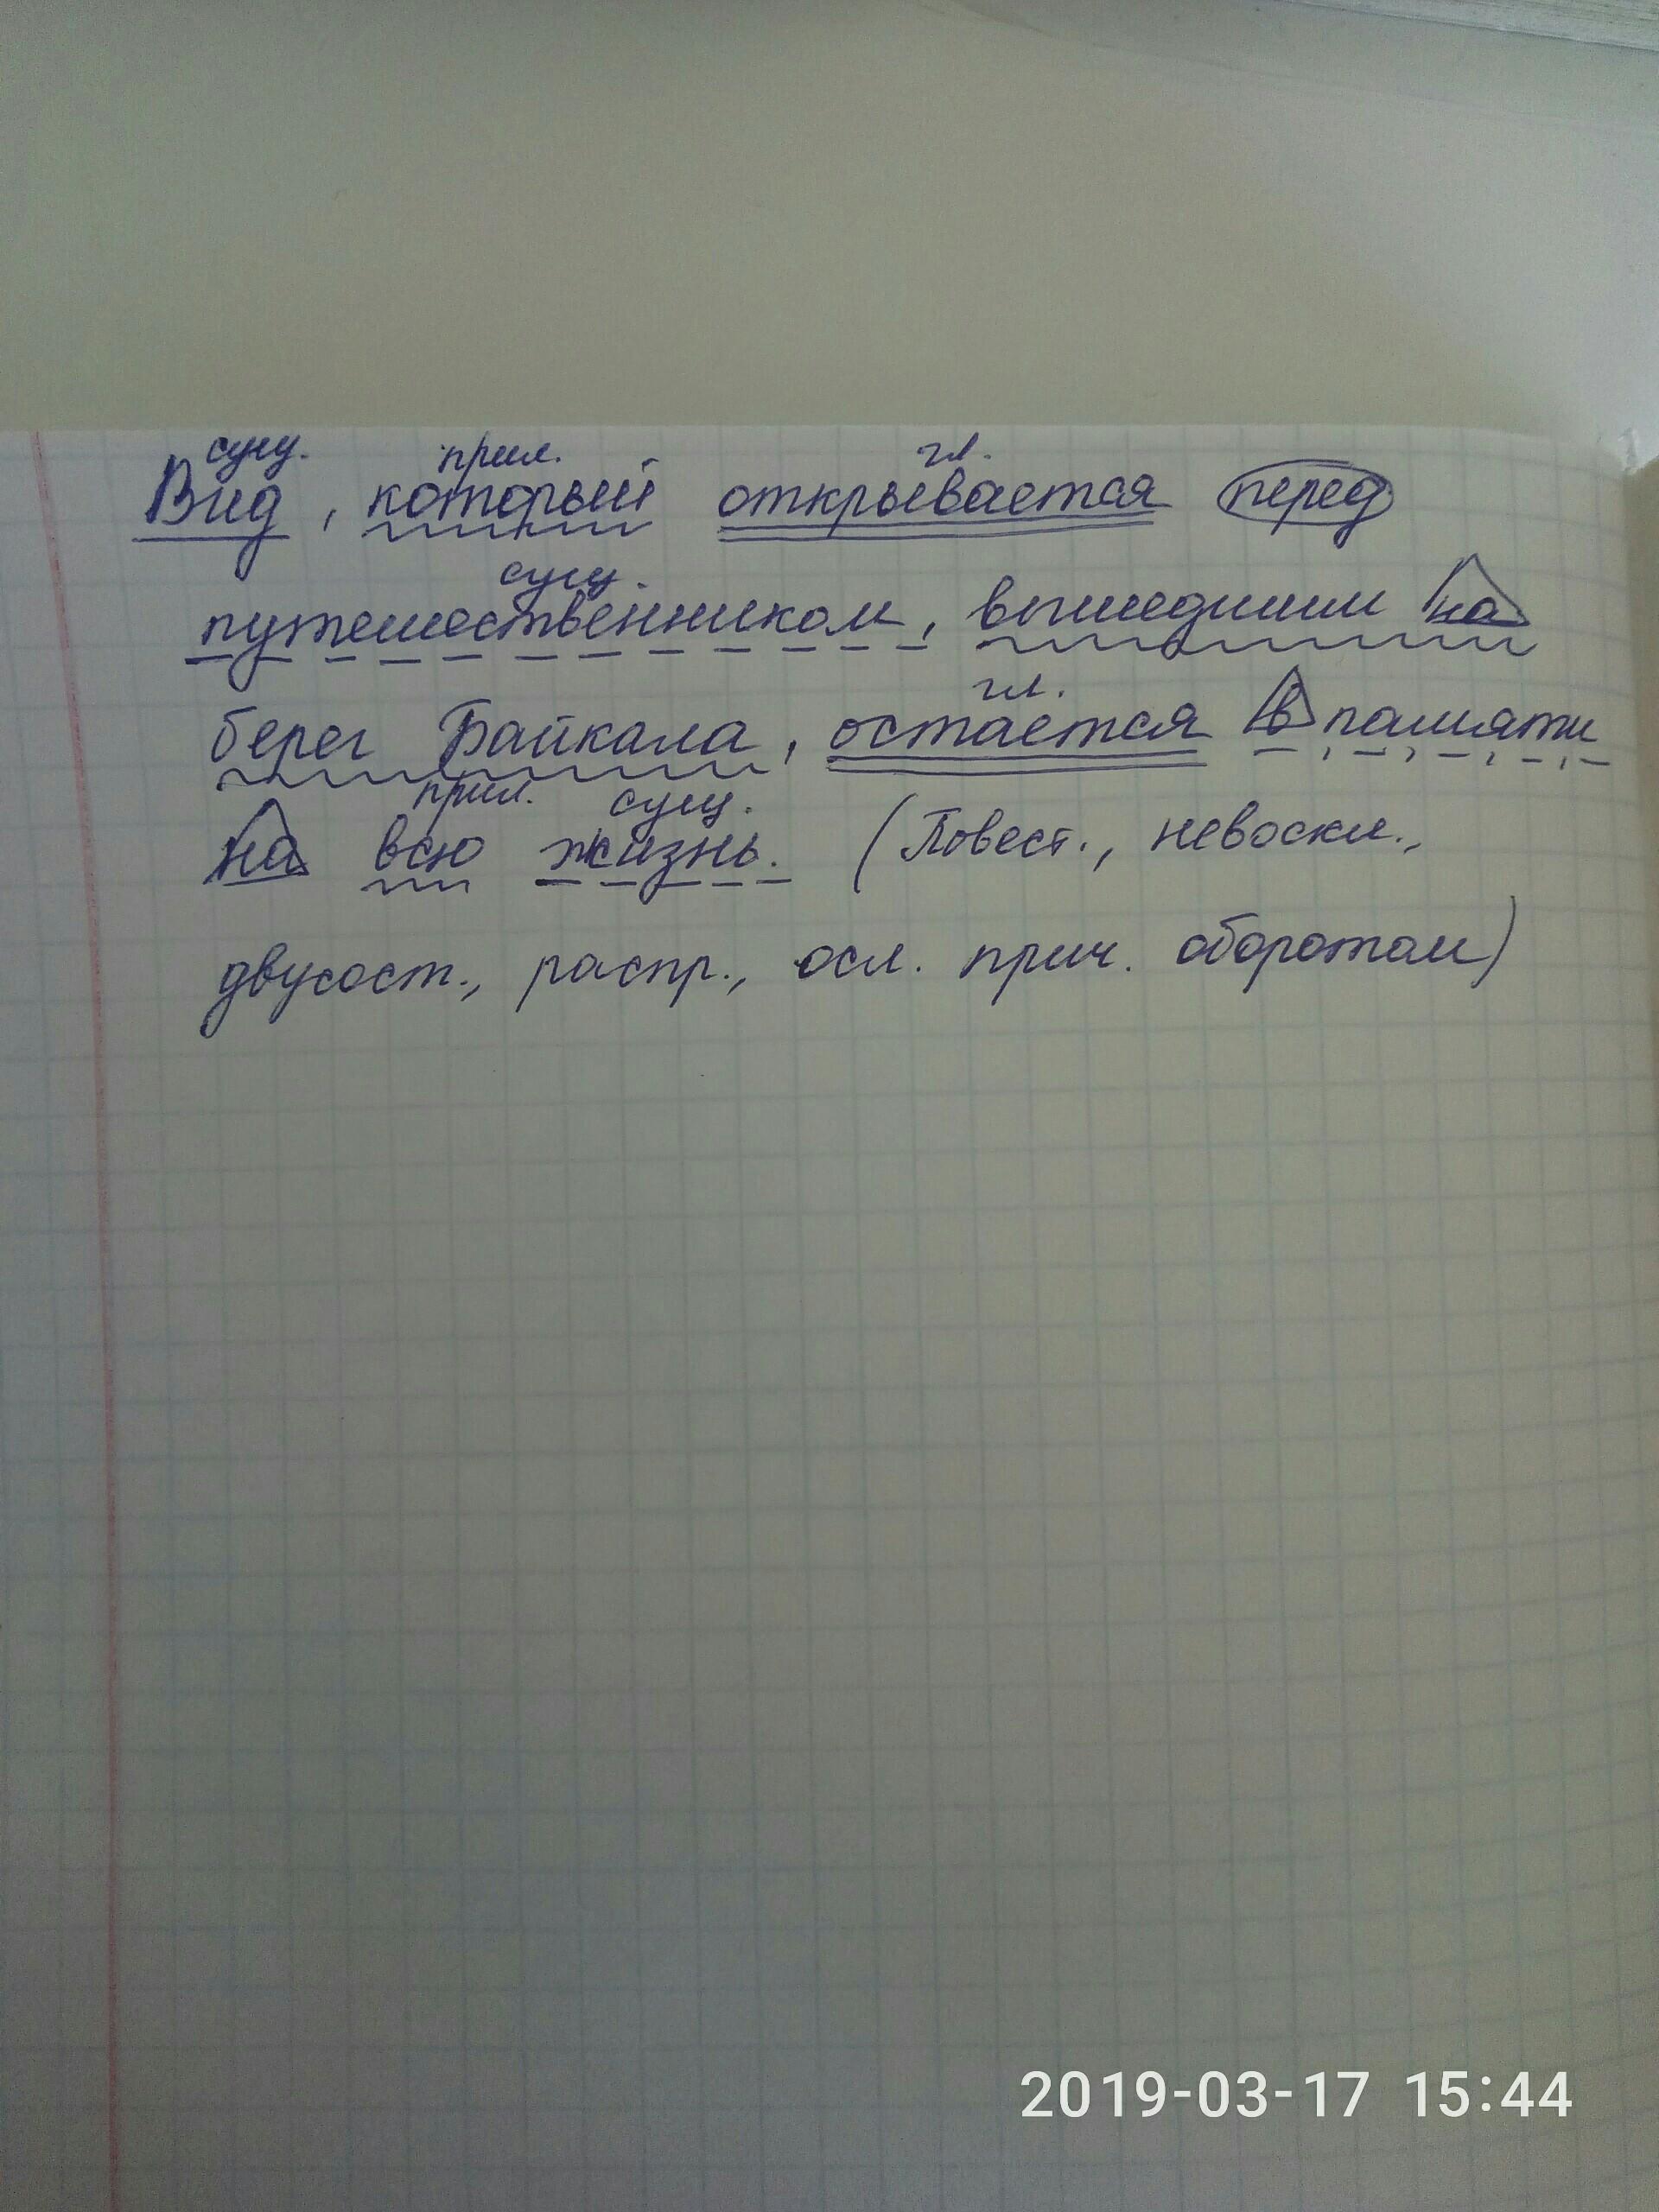 сущ. прил. гл.
Вид, который открывается перед
сущ.
путешественником, вышедшим на
гл.
берег Байкала, остается в памяти
прил. сущ.
на всю жизнь. (Повест., невоскл.,
двусост., распр., осл. прич. оборотом)
2019-03-17 15:44